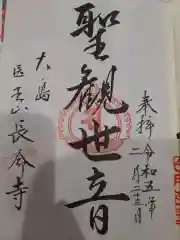 奉拝 令和五年
二月二十五日
聖観世音
大島
医王山 長命寺